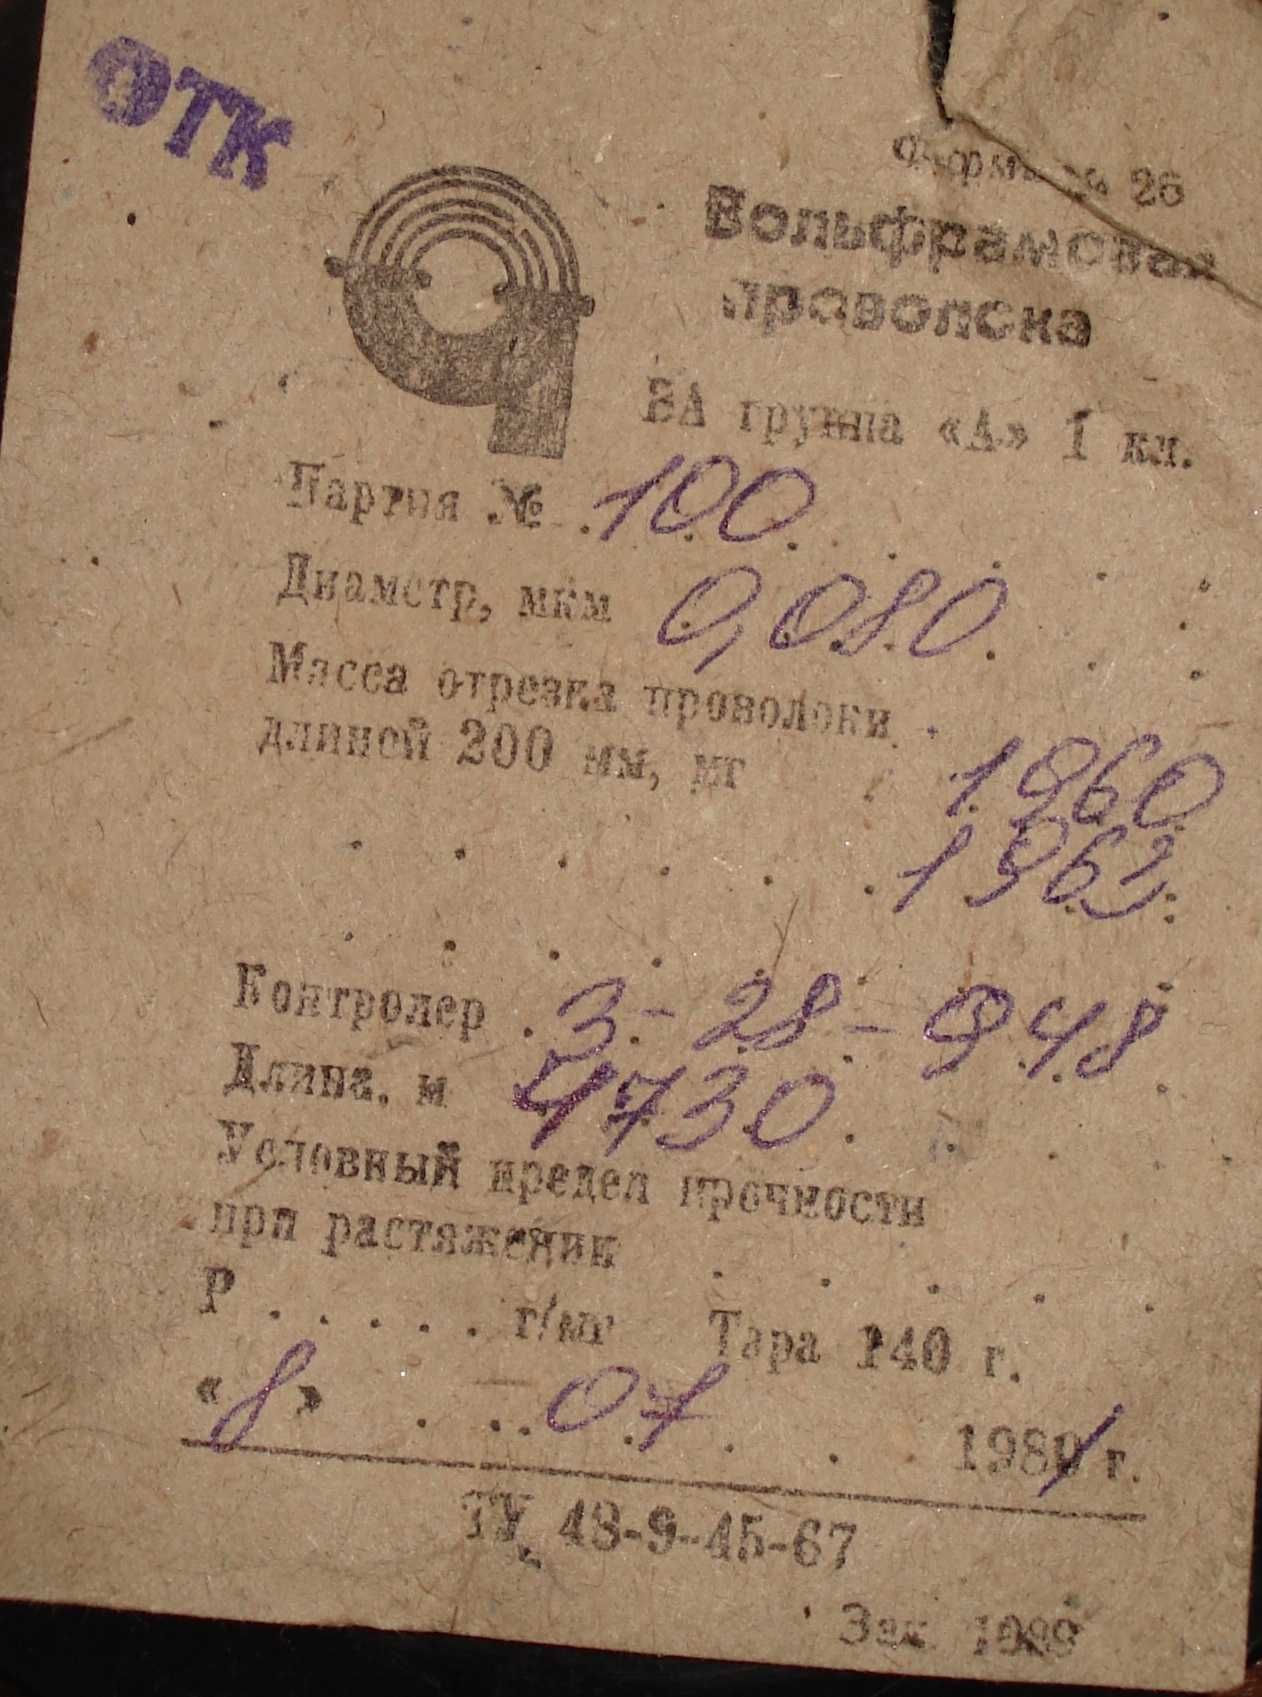 ОТК
26
Вольфрамовая
проволока
ВА группа «А» 1 кл.
Партия № 100
Диаметр, мкм 0,080
Масса отрезка проволоки
длиной 200 мм, мг 1960
1962
Контролер 3-28-948
Длина, м 4730
Условный предел прочности
при растяжении
Р . . . . . г/мг Тара 140 г.
«8» 07 1981 г.
ТУ 48-9-45-67
Зак. 1089